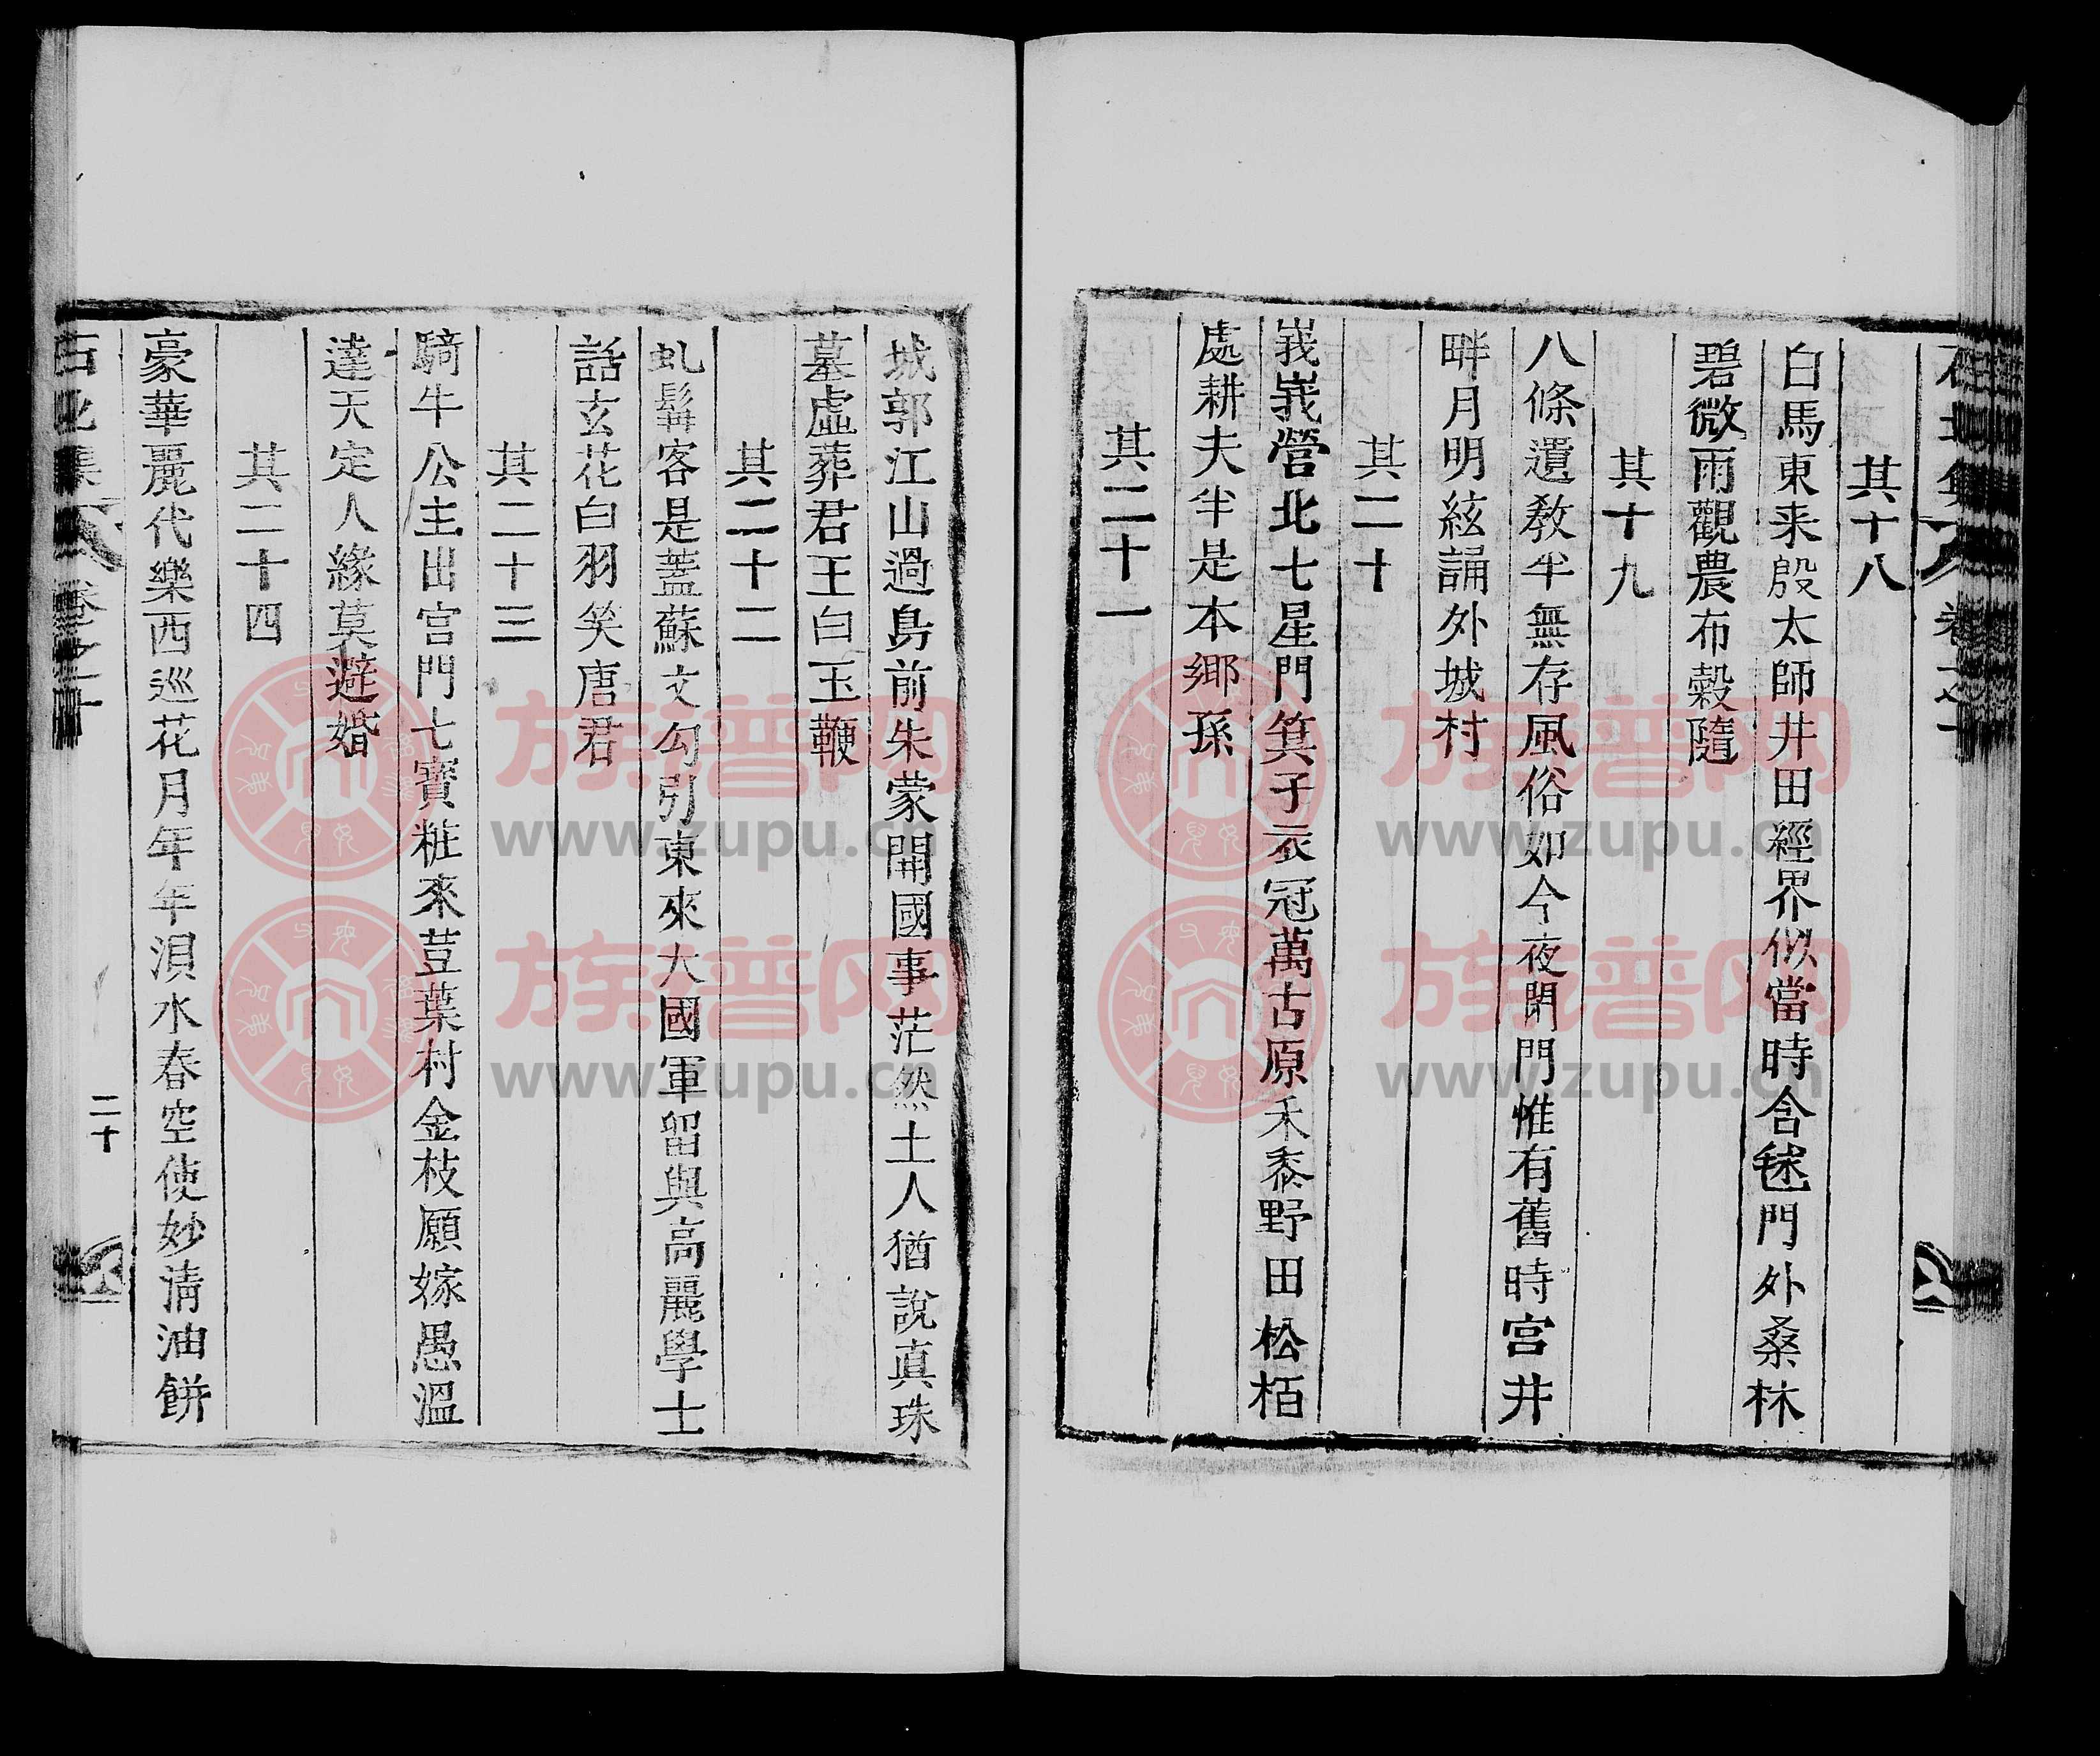 石北集 卷之
其十八
白馬東来殷太師井田經界似當時含毬門外桑林
碧微雨觀農布穀隨
其十九
八條遺教半無存風俗如今夜閉門惟有舊時宮井
畔月明絃誦外城村
其二十
峩峩營北七星門箕子衣冠萬古原禾黍野田松栢
處耕夫半是本鄉孫
其二十一
城郭江山過鳥前朱蒙開國事茫然土人猶說真珠
墓虛葬君王白玉鞭
其二十二
虬髯客是蓋蘇文勾引東來大國軍留與高麗學士
話玄花白羽笑唐君
其二十三
騎牛公主出宮門七寶粧來荳葉村金枝願嫁愚溫
達天定人緣莫避婚
其二十四
豪華麗代樂西巡花月年年浿水春空使妙淸油餅
石北集 卷之 二十
族谱网
www.zupu.cn
族谱网
www.zupu.cn
族谱网
www.zupu.cn
族谱网
www.zupu.cn